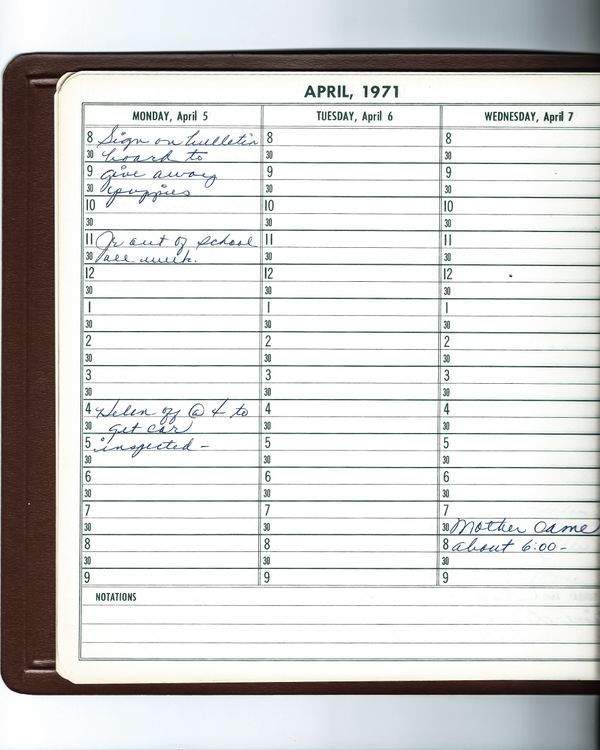 APRIL, 1971
MONDAY, April 5
TUESDAY, April 6
WEDNESDAY, April 7
8 Sign on bulletin
30 board to
9 give away
30 puppies
10
30
11 Jr out of school
30 all week.
12
30
1
30
2
30
3
30
4 Helen off @ 4 to
30 get car
5 inspected -
30
6
30
7
30
8
30
9
8
30
9
30
10
30
11
30
12
30
1
30
2
30
3
30
4
30
5
30
6
30
7
30
8
30
9
8
30
9
30
10
30
11
30
12
30
1
30
2
30
3
30
4
30
5
30
6
30
7
30 Mother came
8 about 6:00-
30
9
NOTATIONS